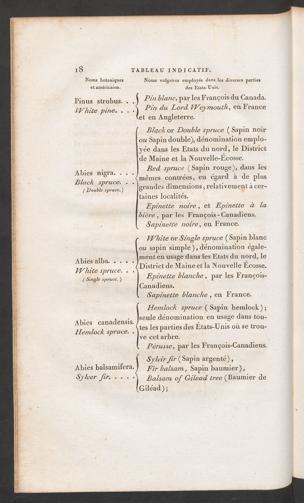 18 TABLEAU INDICATIF.
Noms botaniques
et américains.
Noms vulgaires employés dans les diverses parties
des Etats-Unis.
Pinus strobus. . .
White pine. . . .
Pin blanc, par les François du Canada.
Pin du Lord Weymouth, en France
et en Angleterre.
Abies nigra. . . .
Black spruce. . .
(Double spruce.)
Black or Double spruce ( Sapin noir
ou Sapin double), dénomination emplo-
yée dans les Etats du nord, le District
de Maine et la Nouvelle-Écosse.
Red spruce ( Sapin rouge), dans les
mêmes contrées, en égard à de plus
grandes dimensions, relativement à cer-
taines localités.
Epinette noire, et Epinette à la
bière, par les François-Canadiens.
Sapinette noire, en France.
Abies alba. . . . .
White spruce. . .
(Single spruce.)
White or Single spruce ( Sapin blanc
ou sapin simple), dénomination égale-
ment en usage dans les Etats du nord, le
District de Maine et la Nouvelle Écosse.
Epinette blanche, par les François-
Canadiens.
Sapinette blanche, en France.
Abies canadensis.
Hemlock spruce. .
Hemlock spruce ( Sapin hemlock);
seule dénomination en usage dans tou-
tes les parties des États-Unis où se trou-
ve cet arbre.
Pérusse, par les François-Canadiens.
Abies balsamifera.
Sylver fir. . . . .
Sylvir fir (Sapin argenté),
Fir balsam, Sapin baumier),
Balsam of Gilead tree (Baumier de
Giléad);